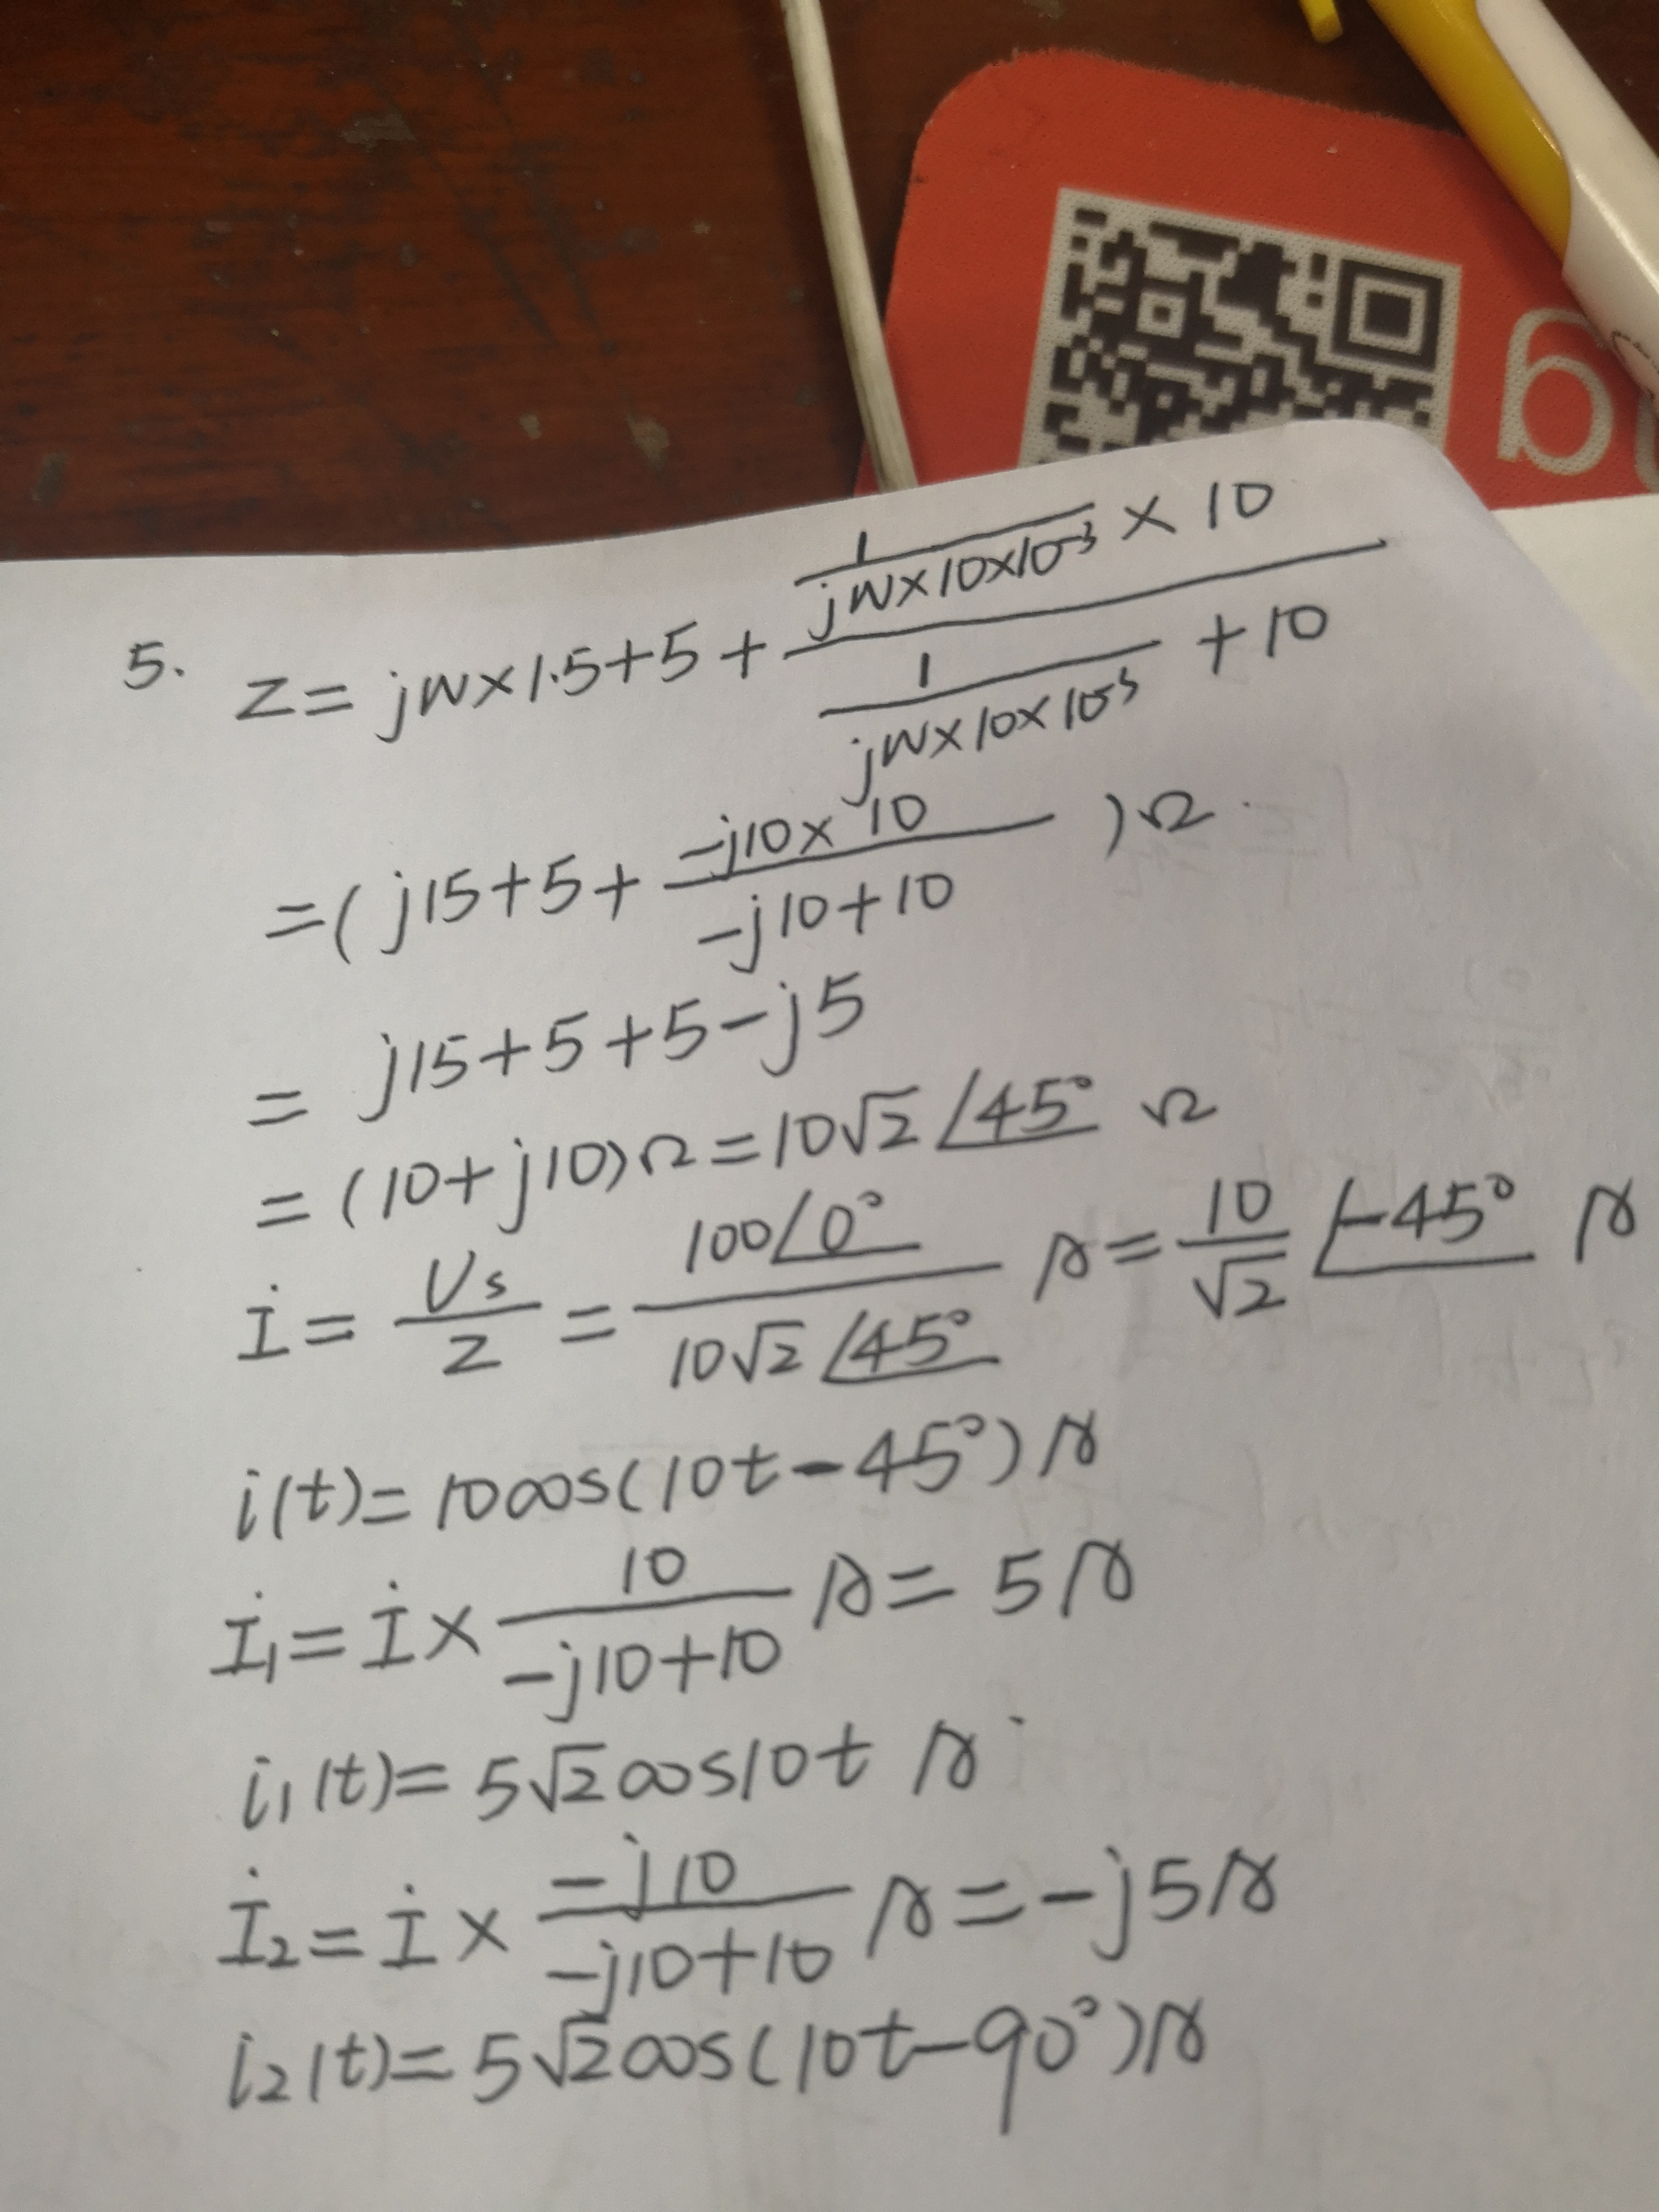 g
5. Z = jw×1.5+5+ (1/(jw×10×10⁻³) ×10)/(1/(jw×10×10⁻³) +10)
=(j15+5+ (-j10×10)/(-j10+10) )Ω
= j15+5+5-j5
= (10+j10)Ω = 10√2 ∠45° Ω
İ = Us/Z = 100∠0°/(10√2∠45°) A = 10/√2 ∠-45° A
i(t)=10cos(10t-45°)A
İ₁ = İ× 10/(-j10+10) A = 5A
i₁(t)=5√2cos10t A
İ₂ = İ× -j10/(-j10+10) A = -j5A
i₂(t)=5√2cos(10t-90°)A